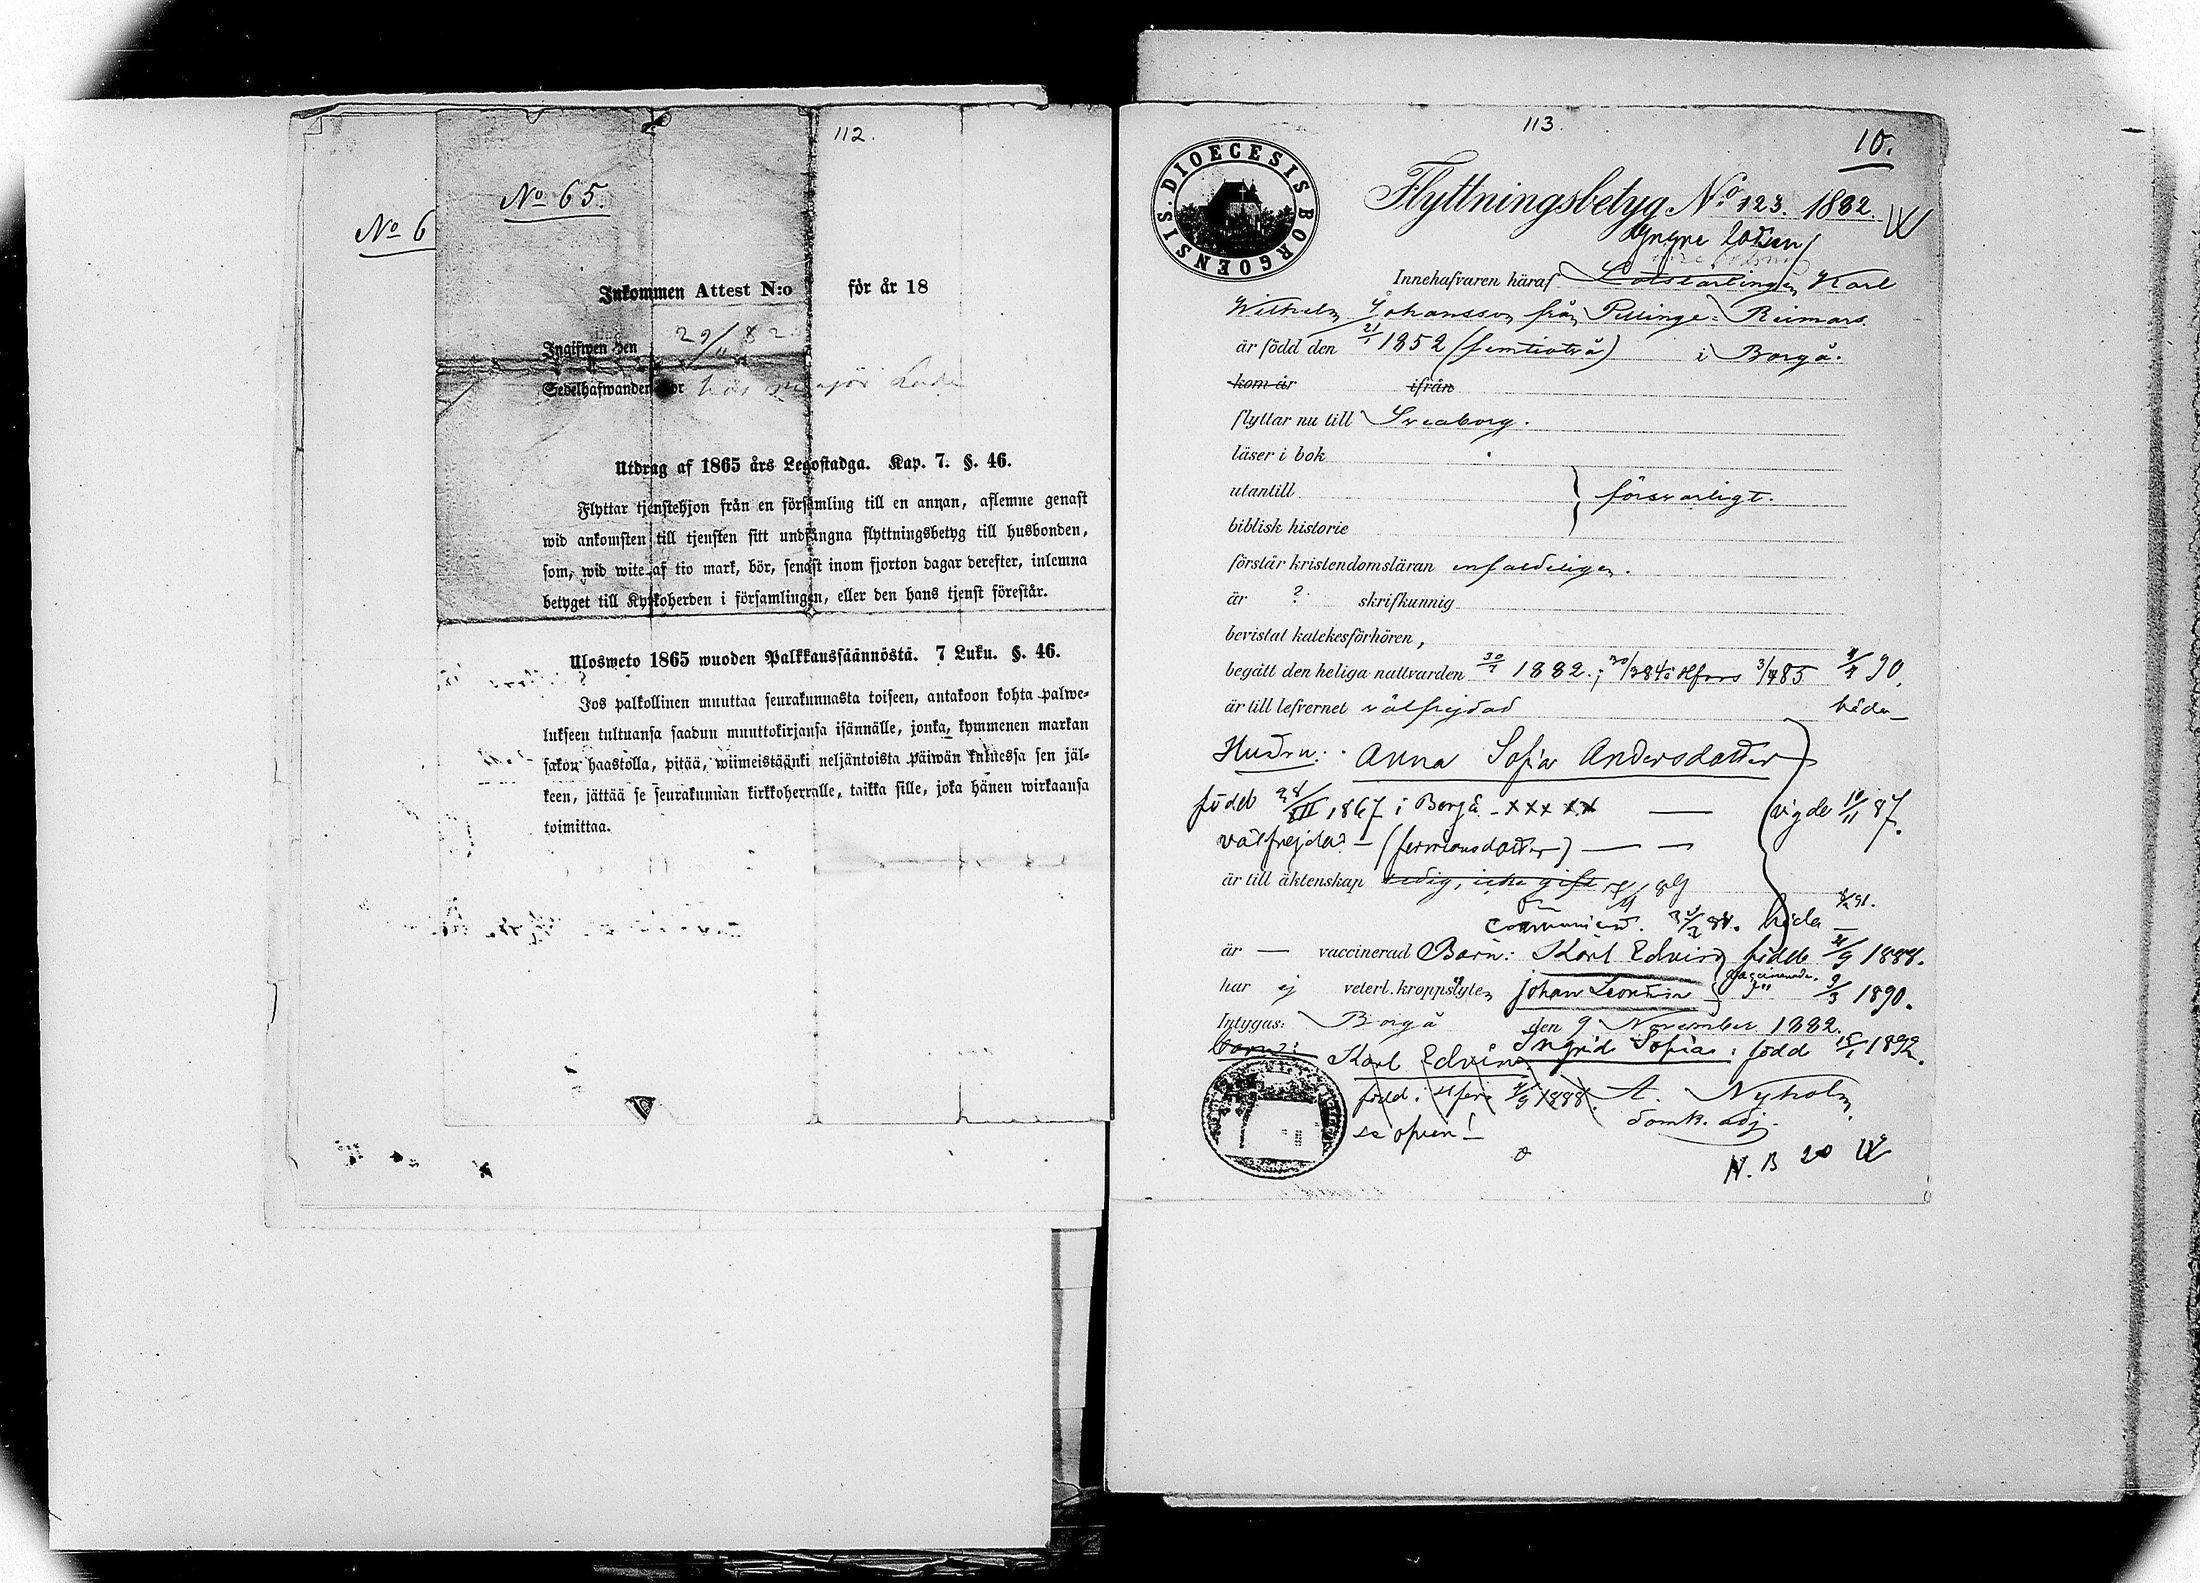 112.
No 65.
No 6
Inkommen Attest N:o för år 18
Ingifwen den 29/11 82
Sedelhafwanden bor hos major
Utdrag af 1865 års Legostadga. Kap. 7. §. 46.
Flyttar tjenstehjon från en församling till en annan, aflemne genast
wid ankomsten till tjensten sitt undfångna flyttningsbetyg till husbonden,
som, wid wite af tio mark, bör, senast inom fjorton dagar derefter, inlemna
betyget till Kyrkoherden i församlingen, eller den hans tjenst förestår.
Ulosweto 1865 wuoden Palkkaussäännöstä. 7 Luku. §. 46.
Jos palkollinen muuttaa seurakunnasta toiseen, antakoon kohta palwe-
lukseen tultuansa saadun muuttokirjansa isännälle, jonka, kymmenen markan
sakon haastolla, pitää, wiimeistäänki neljäntoista päiwän kuluessa sen jäl-
keen, jättää se seurakunnan kirkkoherralle, taikka sille, joka hänen wirkaansa
toimittaa.
113.
10.
SIS. DIOECESIS BORGOENSIS
Flyttningsbetyg No 123. 1882.
Yngre lotsen
Innehafvaren häraf Lotslärlingen Karl
Wilhelm Johansson från Pellinge: Reimars.
är född den 21/1 1852 (femtiotvå) i Borgå.
kom år ifrån
flyttar nu till Sveaborg.
läser i bok
utantill } försvarligt.
biblisk historie
förstår kristendomsläran enfaldeligen.
är ? skrifkunnig
bevistat katekesförhören,
begått den heliga nattvarden 30/7 1882.; 30/3 84 i Hfors 3/4 85 4/4 90.
är till lefvernet välfrejdad båda
Hustru: Anna Sofia Andersdotter
född 28/III 1867 i Borgå - xxx xx vigde 10/11 87.
välfrejdad - (fermansdotter)
är till äktenskap ledig, icke gift
communicerat. båda 8/2 91.
är — vaccinerad Barn: Karl Edvin född 4/9 1888.
har ej veterl. kroppslyten Johan Leontin vaccinerade 9/3 1890.
Intygas: Borgå den 9 November 1882.
barn: Karl Edvin Ingrid Sofia: född 15/1 1892.
född i Hfors 4/9 1888. A. Nyholm
se ofvan! Domk. adj.
N.B 20